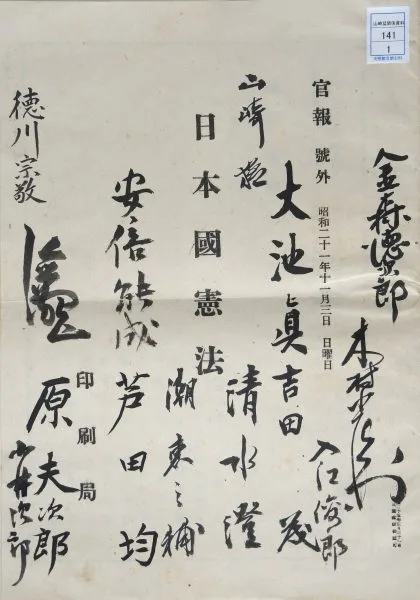 141
1
金森德次郎
入江俊郎
官報 號外 昭和二十一年十一月三日 日曜日
大池眞
吉田茂
山崎猛
清水澄
日本國憲法
潮恵之輔
安倍能成
芦田均
印刷局
德川宗敬
原夫次郎
小林次郎